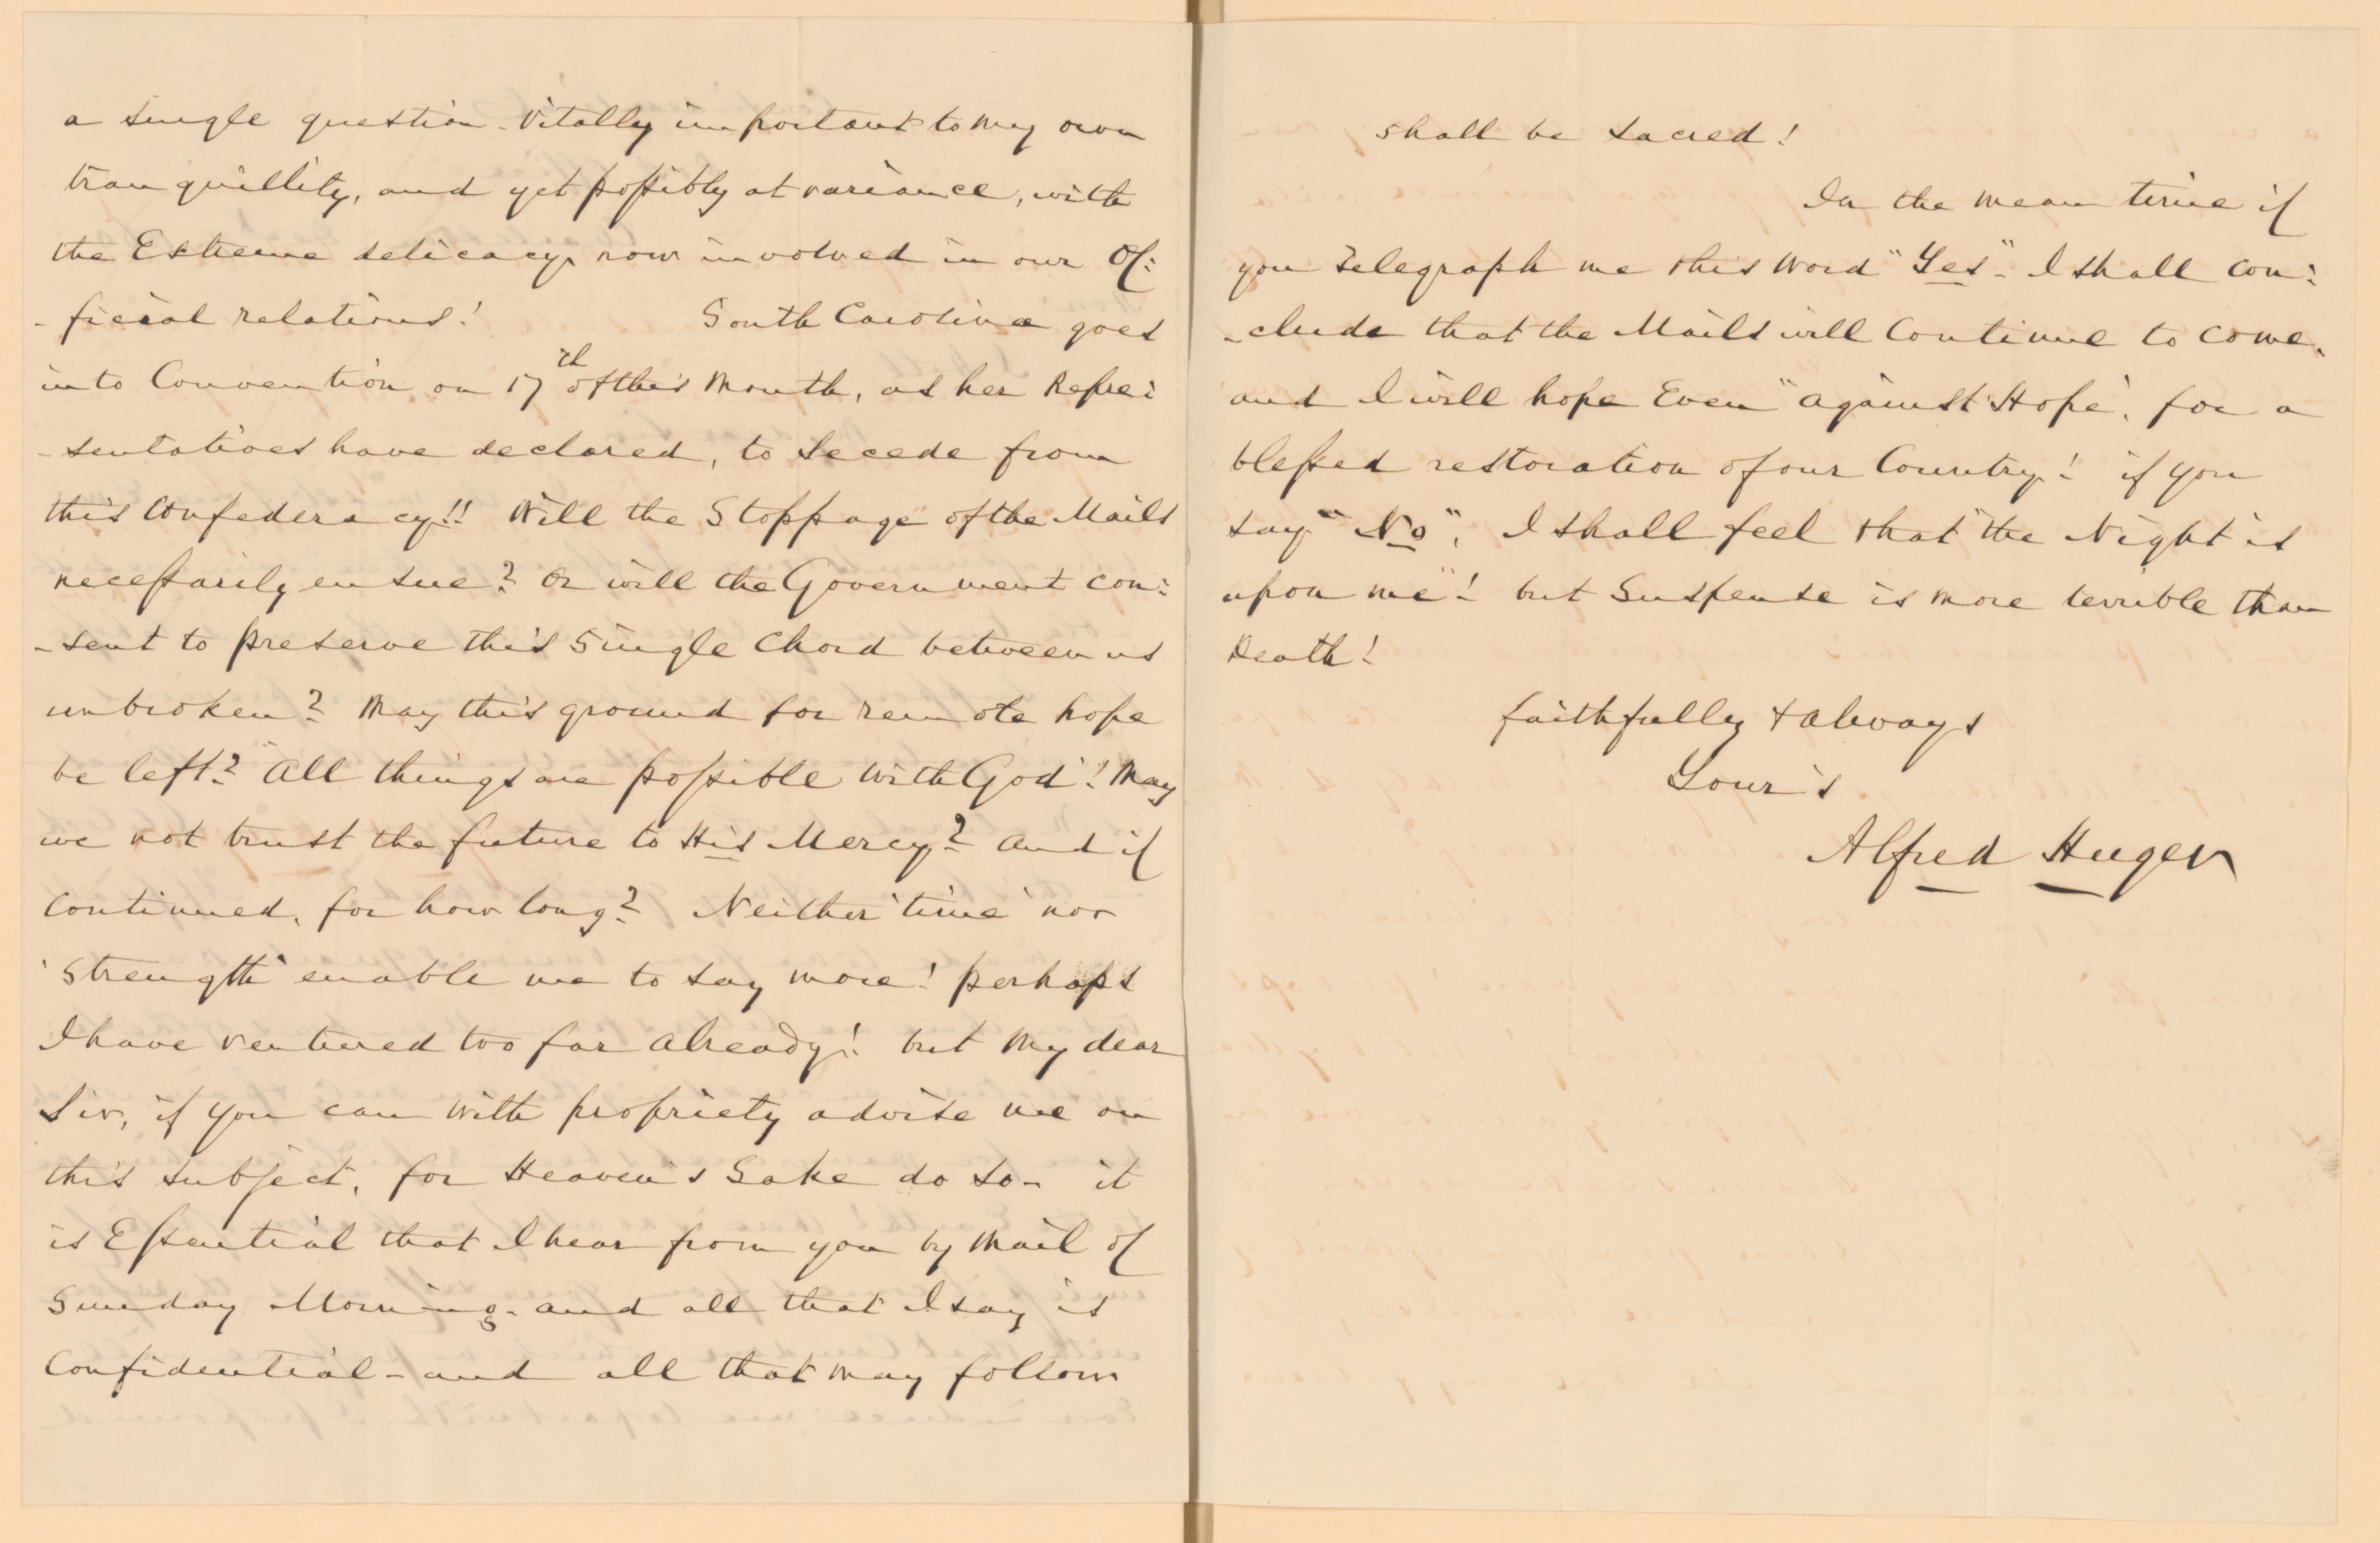 a single question - Vitally important to my own
tranquillity, and yet possibly at variance, with
the Extreme delicacy now involved in our Of:
- ficial relations! South Carolina goes
into Convention on 17th of this Month, as her Repre:
- sentatives have declared, to Secede from
this Confederacy!! Will the Stoppage of the Mails
necessarily ensue? Or will the Government con:
- sent to preserve this Single Chord between us
unbroken? May this ground for remote hope
be left? "All things are possible with God"! May
we not trust the future to His Mercy? And if
continued, for how long? Neither 'time' nor
'Strength' enable me to say more! perhaps
I have ventured too far already! but My dear
Sir, if you can with propriety advise me on
this subject, for Heaven's Sake do so - it
is Essential that I hear from you by Mail of
Sunday Morning - and all that I say is
Confidential - and all that may follow
shall be Sacred!
In the mean time if
you Telegraph me this Word "Yes" - I shall con:
- clude that the Mails will Continue to come,
and I will hope Even "against Hope", for a
blessed restoration of our Country! if you
say "No", I shall feel that "the Night is
upon me"! but Suspense is more terrible than
Death!
faithfully & always
Your's
Alfred Huger